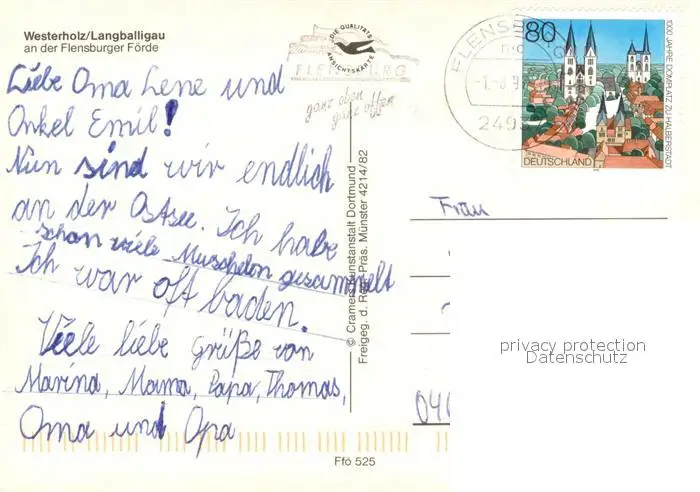 Westerholz/Langballigau
an der Flensburger Förde
Liebe Oma Lene und
Onkel Emil!
Nun sind wir endlich
an der Ostsee. Ich habe
schon viele Muscheln gesammelt
Ich war oft baden.
Viele liebe Grüße von
Marina, Mama, Papa, Thomas,
Oma und Opa
DIE QUALITÄTS
ANSICHTSKARTE
FLENSBURG
ganz oben
ganz offen
FLENSB
2495
80
1000 JAHRE DOMPLATZ ZU HALBERSTADT
DEUTSCHLAND
© Cramers Kunstanstalt Dortmund
Freigeg. d. Reg. Präs. Münster 4214/82
Frau
privacy protection
Datenschutz
Ffö 525